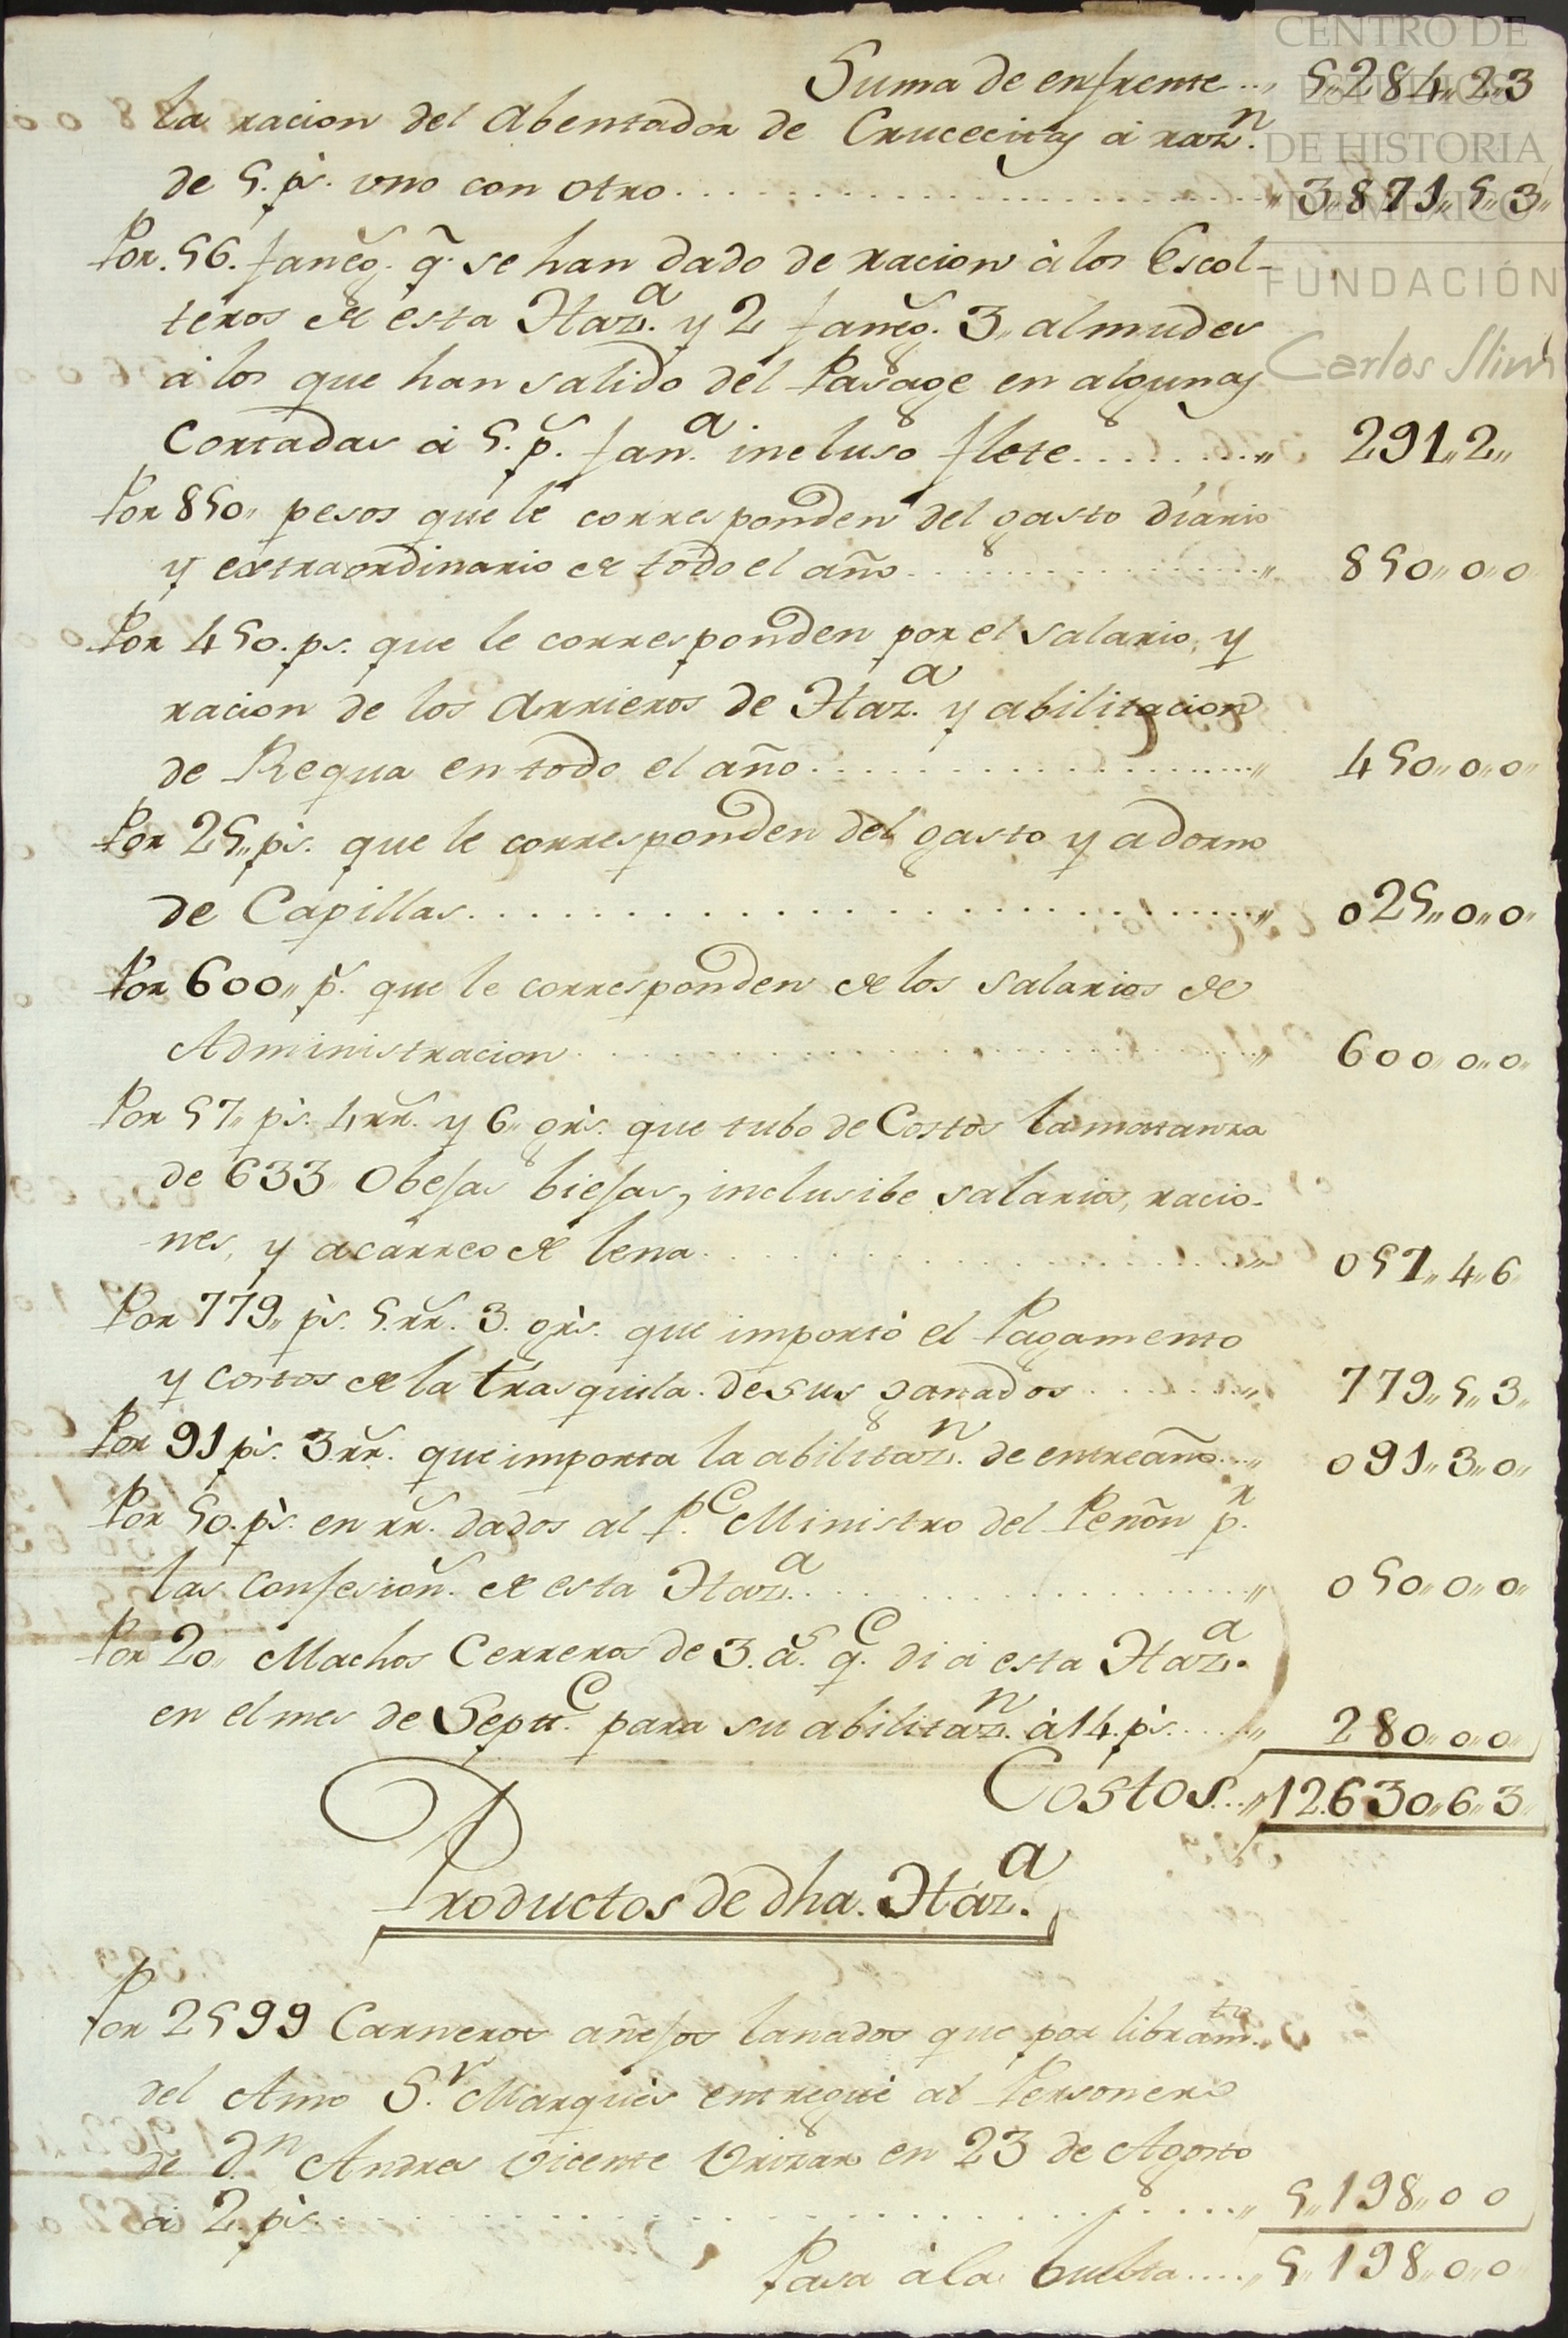 CENTRO DE
ESTUDIOS
DE HISTORIA
DE MÉXICO
FUNDACIÓN
Carlos Slim
Suma de enfrente... 5,,284,,2,,3
la racion del Abentador de Crucecitas á razn.
de 5. ps. uno con otro..................,, 3,,871,,5,,3,,
Por. 56. faneg. q. se han dado de racion á los Escol-
teros de esta Haza. y 2 faneg. 3,, almudes
á los que han salido del Pasage en algunas
Cortadas á 5. ps. fana. incluso flete........,, 291,,2,,
Por 850,, pesos que le corresponden del gasto diario
y extraordinario de todo el año..............,, 850,,0,,0
Por 450. ps. que le corresponden por el salario, y
racion de los Arrieros de Haza. y abilitacion
de Requa en todo el año..................,, 450,,0,,0,,
Por 25,, ps. que le corresponden del gasto y adorno
de Capillas..........................,, 025,,0,,0,,
Por 600,, ps. que le corresponden de los Salarios de
Administracion......................,, 600,,0,,0,,
Por 57,, ps. 4 rr. y 6,, grs. que tubo de Costos la matanza
de 633 Obejas biejas, inclusibe salarios, racio-
nes, y acarreo de lena..................,, 057,,4,,6
Por 779,, ps. 5. rr. 3. grs. que importó el Pagamento
y costos de la trasquila. de sus ganados.......,, 779,,5,,3,,
Por 91 ps. 3 rr. que importa la abilitazn. de entreaño...,, 091,,3,,0,,
Por 50. ps. en rr. dados al Pe. Ministro del Peñon pr.
las confesion. de esta Haza..............,, 050,,0,,0,,
Por 20,, Machos Cerreros de 3. as. qe. di á esta Haza.
en el mes de Septe. para su abilitazn. à 14. ps.....,, 280,,0,,0,,
Costos...,, 12.630,,6,,3,,
Productos de dha. Haza.
Por 2599 Carneros añejos lanados que por libramto.
del Amo Sr. Marquès entregué al Personero
de Dn. Andres Vicente Urizar en 23 de Agosto
á 2. ps.........................,, 5,,198,,0 0
Pasa á la buelta....,, 5,,198,,0,,0